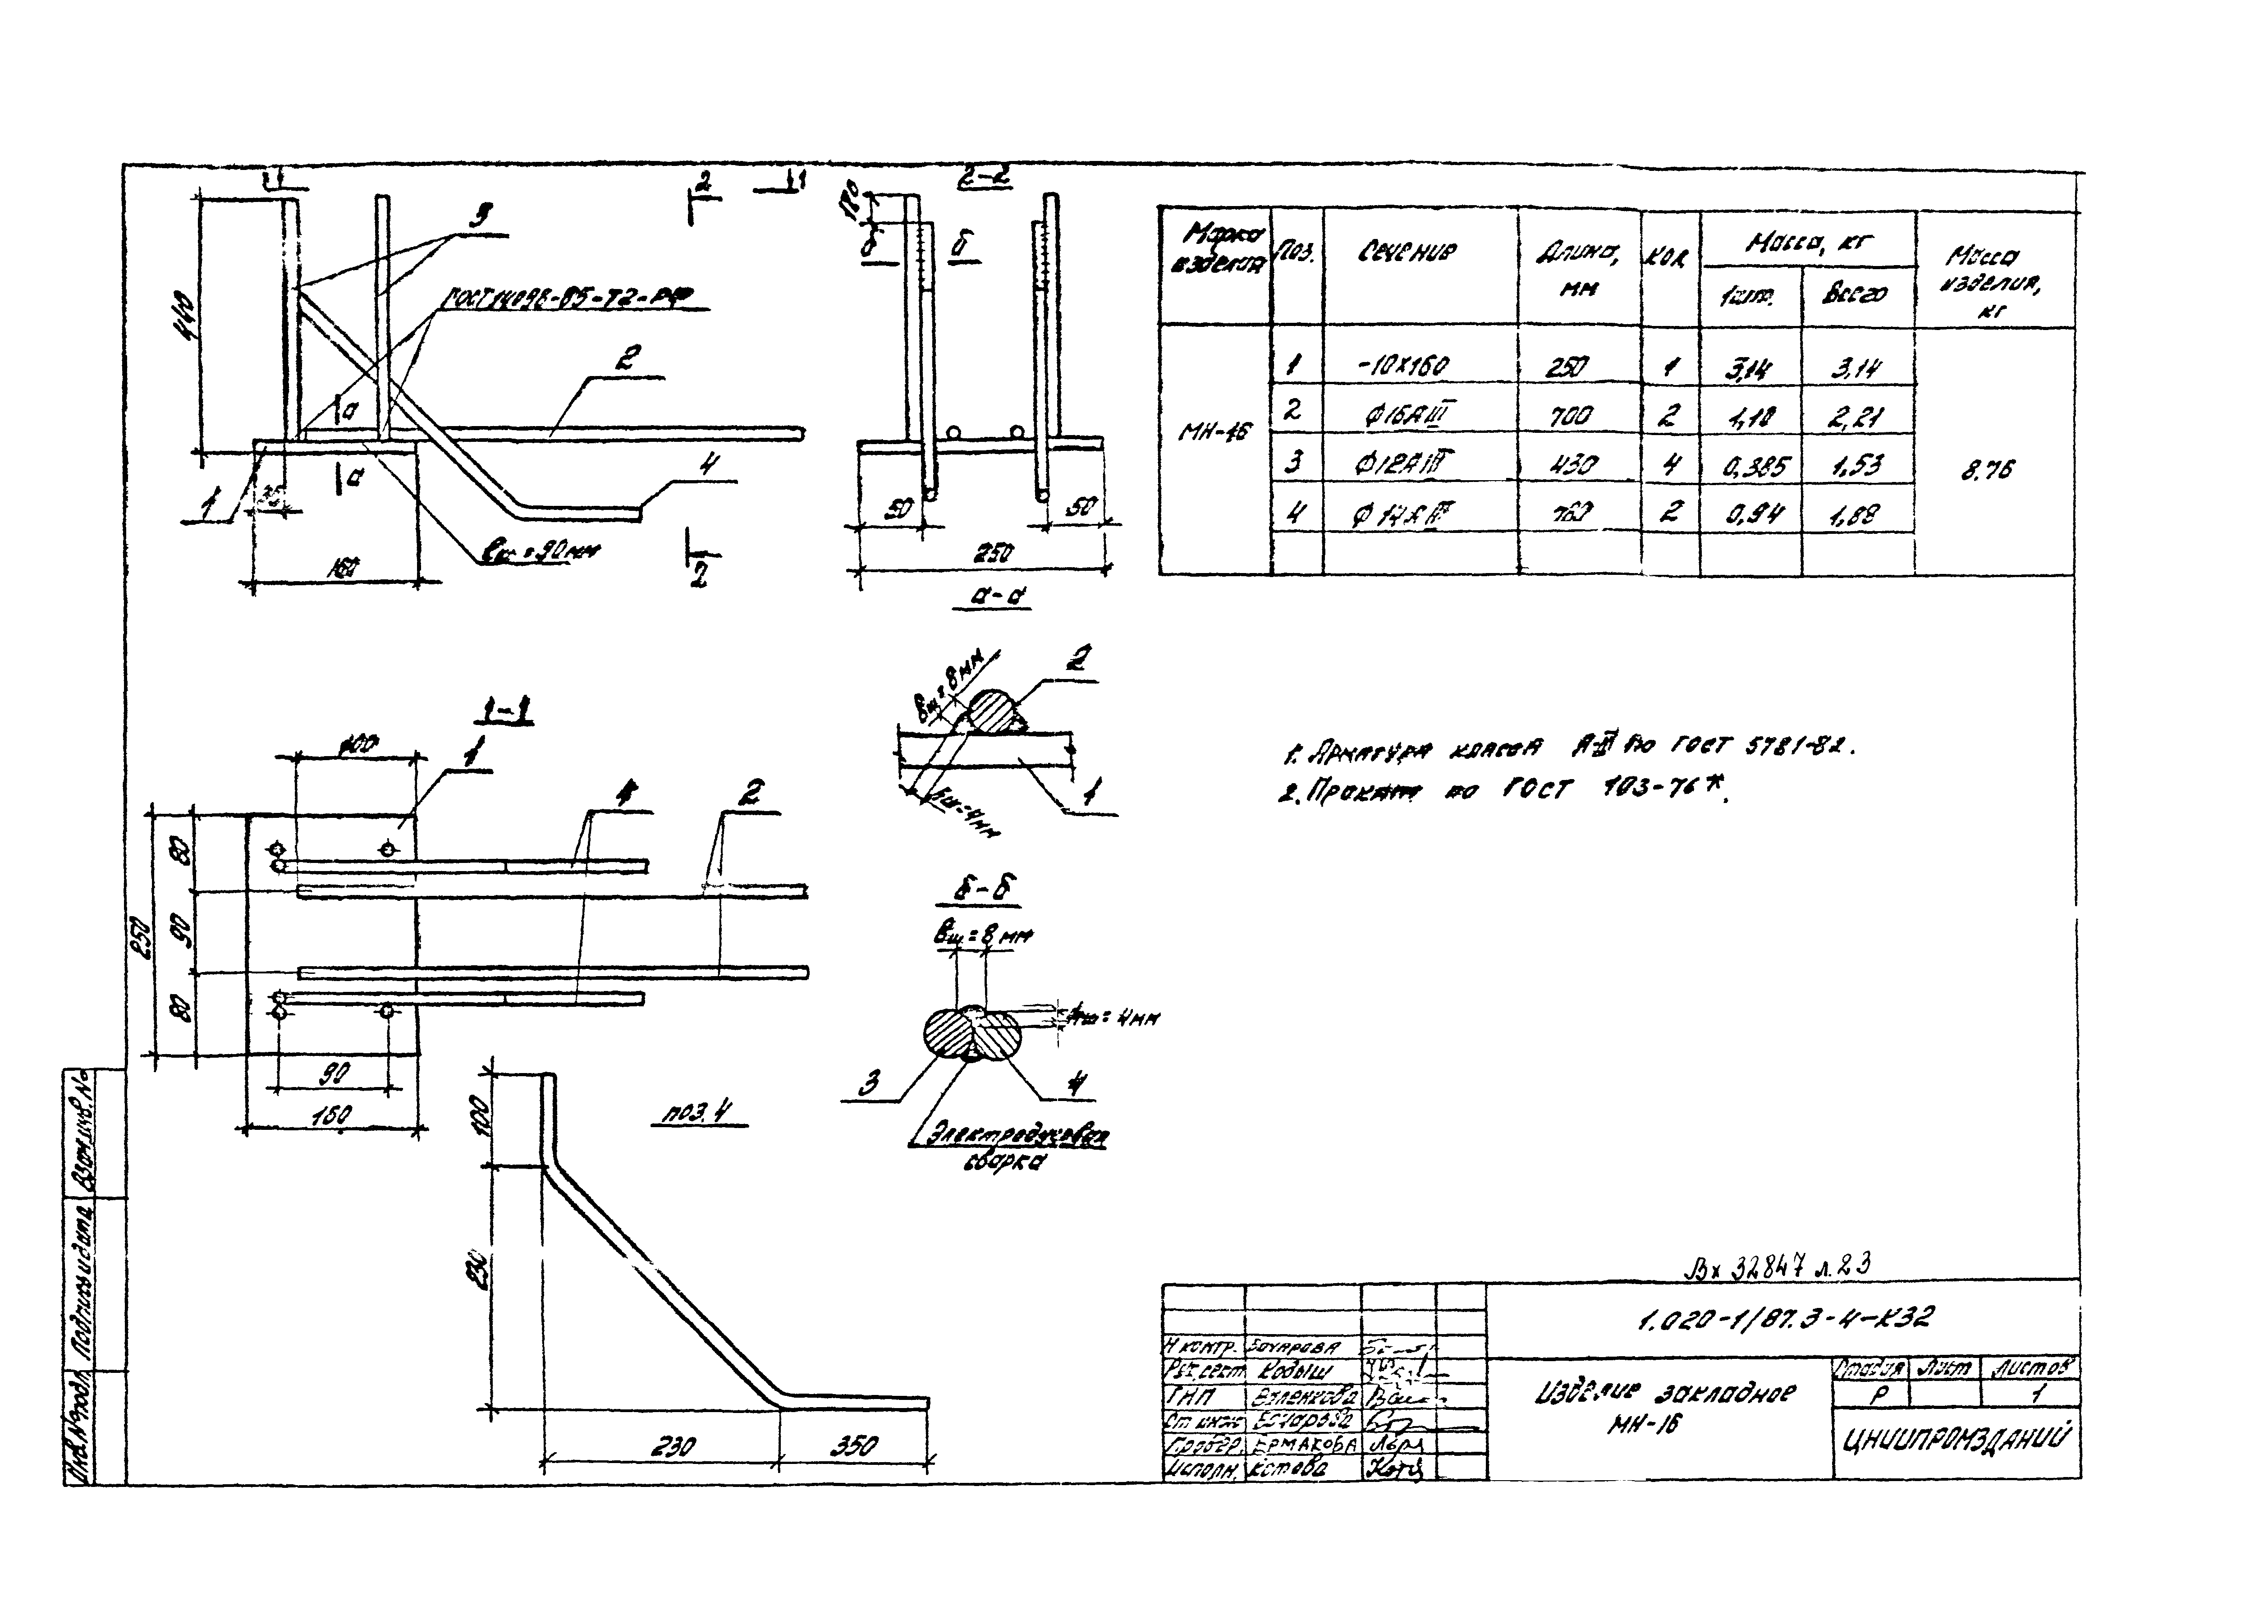 1
2
2-2
3
180
440
ГОСТ 14098-85-Т2-РФ
б
б
2
а
4
а
1
35
50
50
ℓш=90мм
2
160
250
Марка изделия
Поз.
Сечение
Длина, мм
Кол
Масса, кг
1шт.
Всего
Масса изделия, кг
МН-16
1 -10х160 250 1 3,14 3,14
2 Ф16АIII 700 2 1,10 2,21
3 Ф12АIII 430 4 0,385 1,53
4 Ф14АIII 760 2 0,94 1,88
8.76
а-а
вш=8мм
2
1
hш=4мм
1-1
100
1
4
2
80
90
80
250
90
160
б-б
вш=8мм
hш=4мм
3
4
Электродуговая
сварка
поз.4
100
230
230
350
1. Арматура класса А-III по ГОСТ 5781-82.
2. Прокат по ГОСТ 103-76*.
Вх 32847 л.23
1.020-1/87.3-4-К32
Н контр. Бочарова
Рук.сект. Кодыш
ГИП
Ст инж Бочарова
Провер. Ермакова
Исполн. Котова
Изделие закладное
МН-16
Стадия Лист Листов
Р 1
ЦНИИПРОМЗДАНИЙ
Инв.№подл.
Подпись и дата
Взам.инв.№